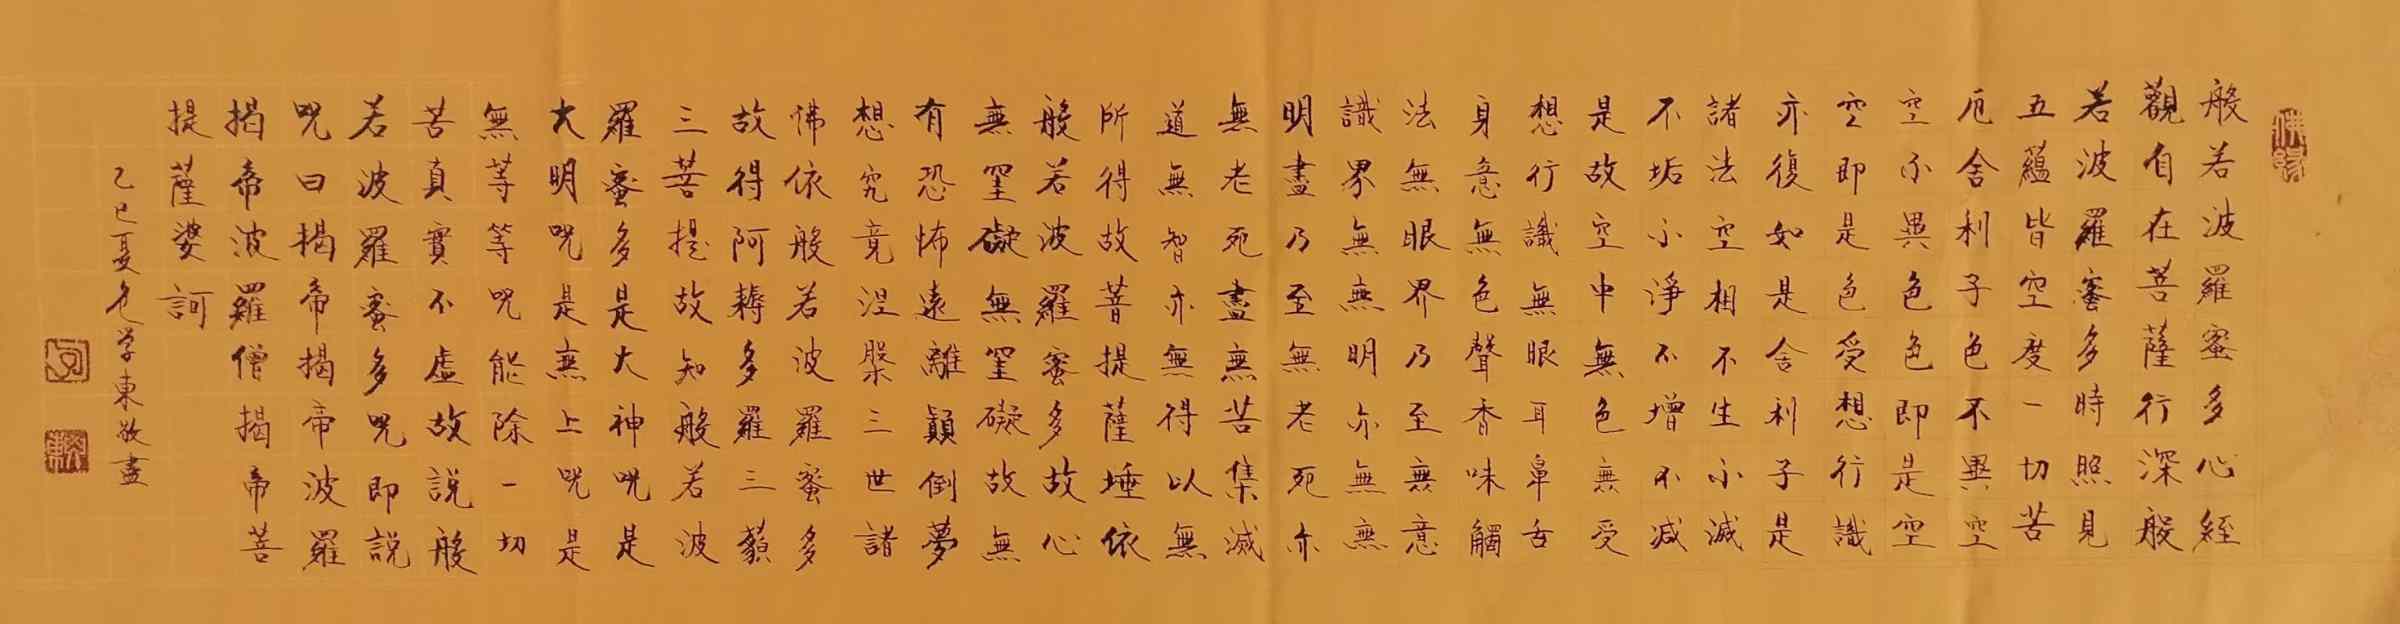 般若波羅蜜多心經
觀自在菩薩行深般
若波羅蜜多時照見
五蘊皆空度一切苦
厄舍利子色不異空
空不異色色即是空
空即是色受想行識
亦復如是舍利子是
諸法空相不生不滅
不垢不淨不增不減
是故空中無色無受
想行識無眼耳鼻舌
身意無色聲香味觸
法無眼界乃至無意
識界無無明亦無無
明盡乃至無老死亦
無老死盡無苦集滅
道無智亦無得以無
所得故菩提薩埵依
般若波羅蜜多故心
無罣礙無罣礙故無
有恐怖遠離顛倒夢
想究竟涅槃三世諸
佛依般若波羅蜜多
故得阿耨多羅三藐
三菩提故知般若波
羅蜜多是大神咒是
大明咒是無上咒是
無等等咒能除一切
苦真實不虛故說般
若波羅蜜多咒即說
咒曰揭帝揭帝波羅
揭帝波羅僧揭帝菩
提薩婆訶
乙巳夏學東敬書